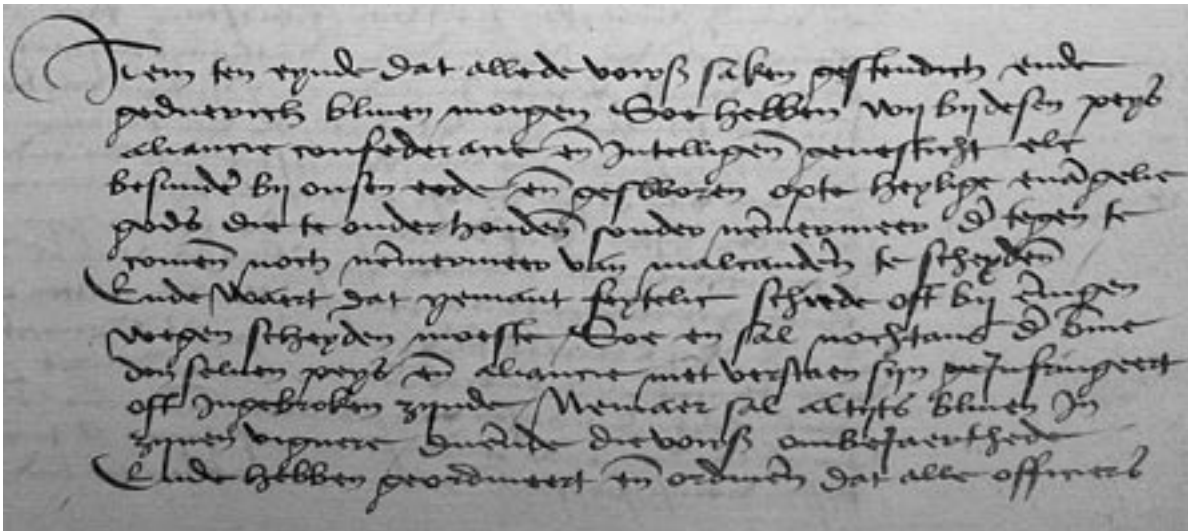 Item ten eynde dat allede vorß saken gestendich ende
geduerich bliuen moigen Soe hebben wij bij desen peys
aliancie confederacie eñ Intelligen̄ geuesticht elc
besunder̄ bij onsen eede eñ gesworen opte heylige euāgelie
gods die te onderhouden̄ sonder nēmermeer dʼ tegen te
comen̄ noch nēmermeer van malcanderē te scheyden̄
Ende waert dat yemant feytelic schiede oft bij eēnigen
wegen scheyden moeste Soe en sal nochtans dʼ bīne
den seluen peys eñ aliancie niet verstaen sijn geInfringeert
oft Ingebroken zijnde Nemaer sal altijts bliuen In
zijnen viguere duerēde die vorß ombejaerthede
Ende hebben geordineert eñ ordinerē dat alle officiers